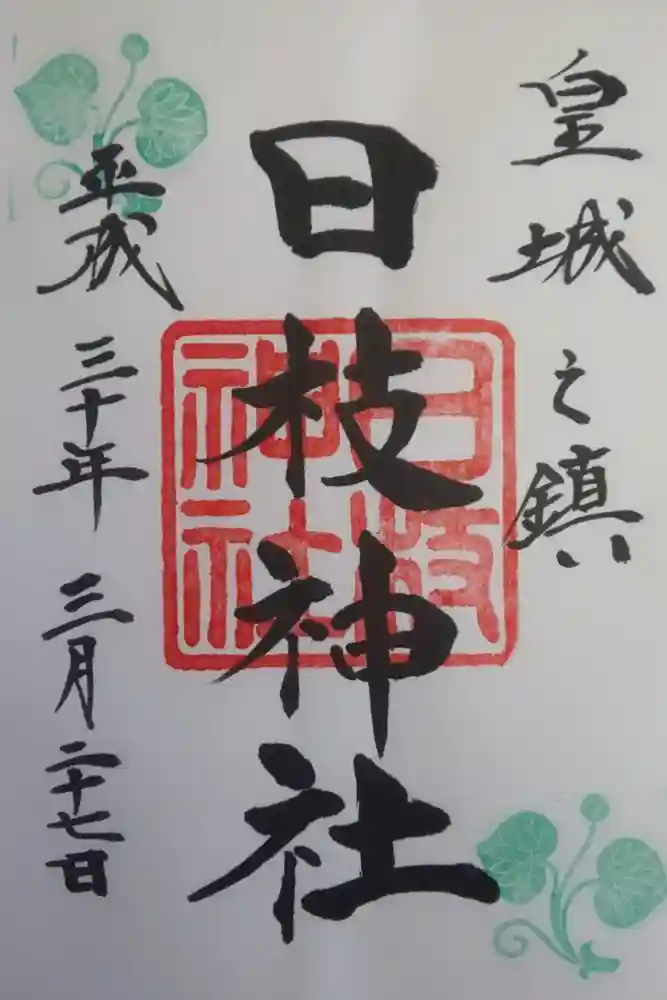 皇城之鎮
日枝神社
日枝神社
平成三十年三月二十七日